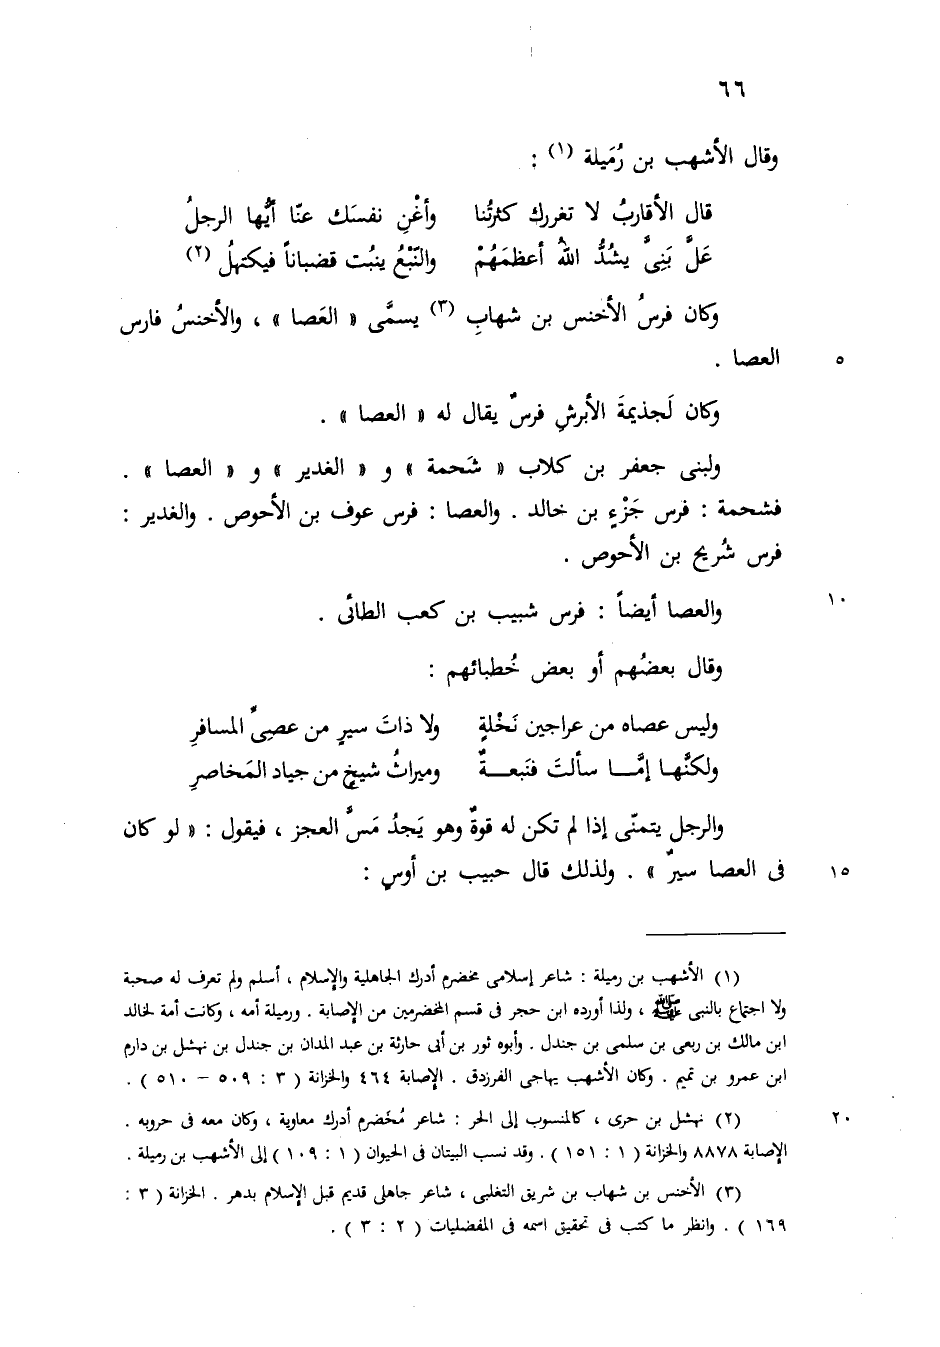 ٦٦
وقال الأشهب بن رُمَيلة (١) :
قال الأقاربُ لا تغررك كثرتُنا وأغْنِ نفسَك عنّا أيُّها الرجلُ
عَلَّ بَنِىَّ يشُدُّ اللهُ أعظمَهُمْ والنَّبْعُ ينبُت قضباناً فيكتهلُ (٢)
وكان فرسُ الأخنس بن شهابِ (٣) يسمَّى « العَصا » ، والأخنسُ فارس
٥ العصا .
وكان لَجذيمةَ الأبرشِ فرسٌ يقال له « العصا » .
ولبنى جعفر بن كلاب « شَحمة » و « الغدير » و « العصا » .
فشحمة : فرس جَزْءٍ بن خالد . والعصا : فرس عوف بن الأحوص . والغدير :
فرس شُريح بن الأحوص .
١٠ والعصا أيضاً : فرس شبيب بن كعب الطائى .
وقال بعضُهم أو بعض خُطبائهم :
وليس عصاه من عراجين نَخْلةٍ ولا ذاتَ سيرٍ من عصِىِّ المسافرِ
ولكنَّها إمَّـا سألتَ فنَبعـةٌ وميراثُ شيخٍ من جياد المَخاصرِ
والرجل يتمنّى إذا لم تكن له قوةٌ وهو يَجدُ مَسَّ العجز ، فيقول : « لو كان
١٥ فى العصا سيرٌ » . ولذلك قال حبيب بن أوس :
(١) الأشهب بن رميلة : شاعر إسلامى مخضرم أدرك الجاهلية والإسلام ، أسلم ولم تعرف له صحبة
ولا اجتماع بالنبى ﷺ ، ولذا أورده ابن حجر فى قسم المخضرمين من الإصابة . ورميلة أمه ، وكانت أمة لخالد
ابن مالك بن ربعى بن سلمى بن جندل . وأبوه ثور بن أبى حارثة بن عبد المدان بن جندل بن نهشل بن دارم
ابن عمرو بن تميم . وكان الأشهب يهاجى الفرزدق . الإصابة ٤٦٤ والخزانة ( ٣ : ٥٠٩ – ٥١٠ ) .
٢٠ (٢) نهشل بن حرى ، كالمنسوب إلى الحر : شاعر مُخَضرم أدرك معاوية ، وكان معه فى حروبه .
الإصابة ٨٨٧٨ والخزانة ( ١ : ١٥١ ) . وقد نسب البيتان فى الحيوان ( ١ : ١٠٩ ) إلى الأشهب بن رميلة .
(٣) الأخنس بن شهاب بن شريق التغلبى ، شاعر جاهلى قديم قبل الإسلام بدهر . الخزانة ( ٣ :
١٦٩ ) . وانظر ما كتب فى تحقيق اسمه فى المفضليات ( ٢ : ٣ ) .